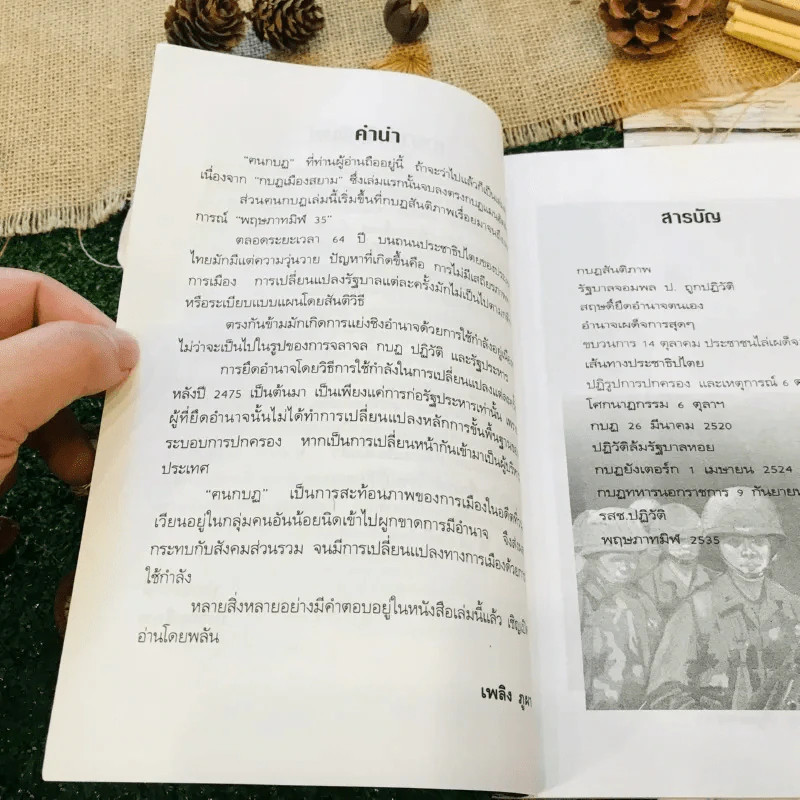 คำนำ
"คนกบฏ" ที่ท่านผู้อ่านถืออยู่นี้ ถ้าจะว่าไปแล้วก็เป็น
เนื่องจาก "กบฏเมืองสยาม" ซึ่งเล่มแรกนั้นจบลงตรงกบฏแมนฮัตตัน
ส่วนคนกบฏเล่มนี้เริ่มขึ้นที่กบฏสันติภาพเรื่อยมาจนถึง
การณ์ "พฤษภาทมิฬ 35"
ตลอดระยะเวลา 64 ปี บนถนนประชาธิปไตยของประเทศ
ไทยมักมีแต่ความวุ่นวาย ปัญหาที่เกิดขึ้นคือ การไม่มีเสถียรภาพ
การเมือง การเปลี่ยนแปลงรัฐบาลแต่ละครั้งมักไม่เป็นไปตาม
หรือระเบียบแบบแผนโดยสันติวิธี
ตรงกันข้ามมักเกิดการแย่งชิงอำนาจด้วยการใช้กำลังอยู่เนือง
ไม่ว่าจะเป็นไปในรูปของการจลาจล กบฏ ปฏิวัติ และรัฐประหาร
การยึดอำนาจโดยวิธีการใช้กำลังในการเปลี่ยนแปลง
หลังปี 2475 เป็นต้นมา เป็นเพียงแค่การก่อรัฐประหารเท่านั้น
ผู้ที่ยึดอำนาจนั้นไม่ได้ทำการเปลี่ยนแปลงหลักการขั้นพื้นฐาน
ระบอบการปกครอง หากเป็นการเปลี่ยนหน้ากันเข้ามาเป็นผู้บริหาร
ประเทศ
"คนกบฏ" เป็นการสะท้อนภาพของการเมืองในอดีต
เวียนอยู่ในกลุ่มคนอันน้อยนิดเข้าไปผูกขาดการมีอำนาจ จึงส่งผล
กระทบกับสังคมส่วนรวม จนมีการเปลี่ยนแปลงทางการเมืองด้วยการ
ใช้กำลัง
หลายสิ่งหลายอย่างมีคำตอบอยู่ในหนังสือเล่มนี้แล้ว เชิญเปิด
อ่านโดยพลัน
เพลิง ภูผา
สารบัญ
กบฏสันติภาพ
รัฐบาลจอมพล ป. ถูกปฏิวัติ
สฤษดิ์ยึดอำนาจตนเอง
อำนาจเผด็จการสุดๆ
ขบวนการ 14 ตุลาคม ประชาชนไล่เผด็จ
เส้นทางประชาธิปไตย
ปฏิรูปการปกครอง และเหตุการณ์ 6
โศกนาฏกรรม 6 ตุลาฯ
กบฏ 26 มีนาคม 2520
ปฏิวัติล้มรัฐบาลหอย
กบฏยังเตอร์ก 1 เมษายน 2524
กบฏทหารนอกราชการ 9 กันยายน
รสช.ปฏิวัติ
พฤษภาทมิฬ 2535